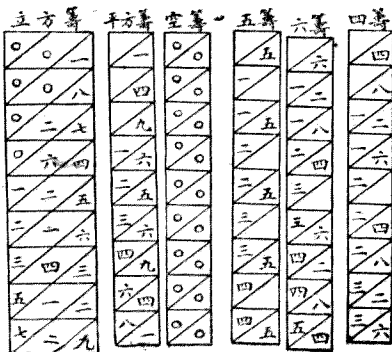 立方籌 平方籌 空籌 五籌 六籌 四籌
○○一 一 ○○ 五 六 四
○○八 四 ○○ 一 一二 八
○二七 九 ○○ 一五 一八 一二
○六四 一六 ○○ 二 二四 一六
一二五 二五 ○○ 二五 三 二
二一六 三六 ○○ 三 三六 二四
三四三 四九 ○○ 三五 四二 二八
五一二 六四 ○○ 四 四八 三二
七二九 八一 ○○ 四五 五四 三六